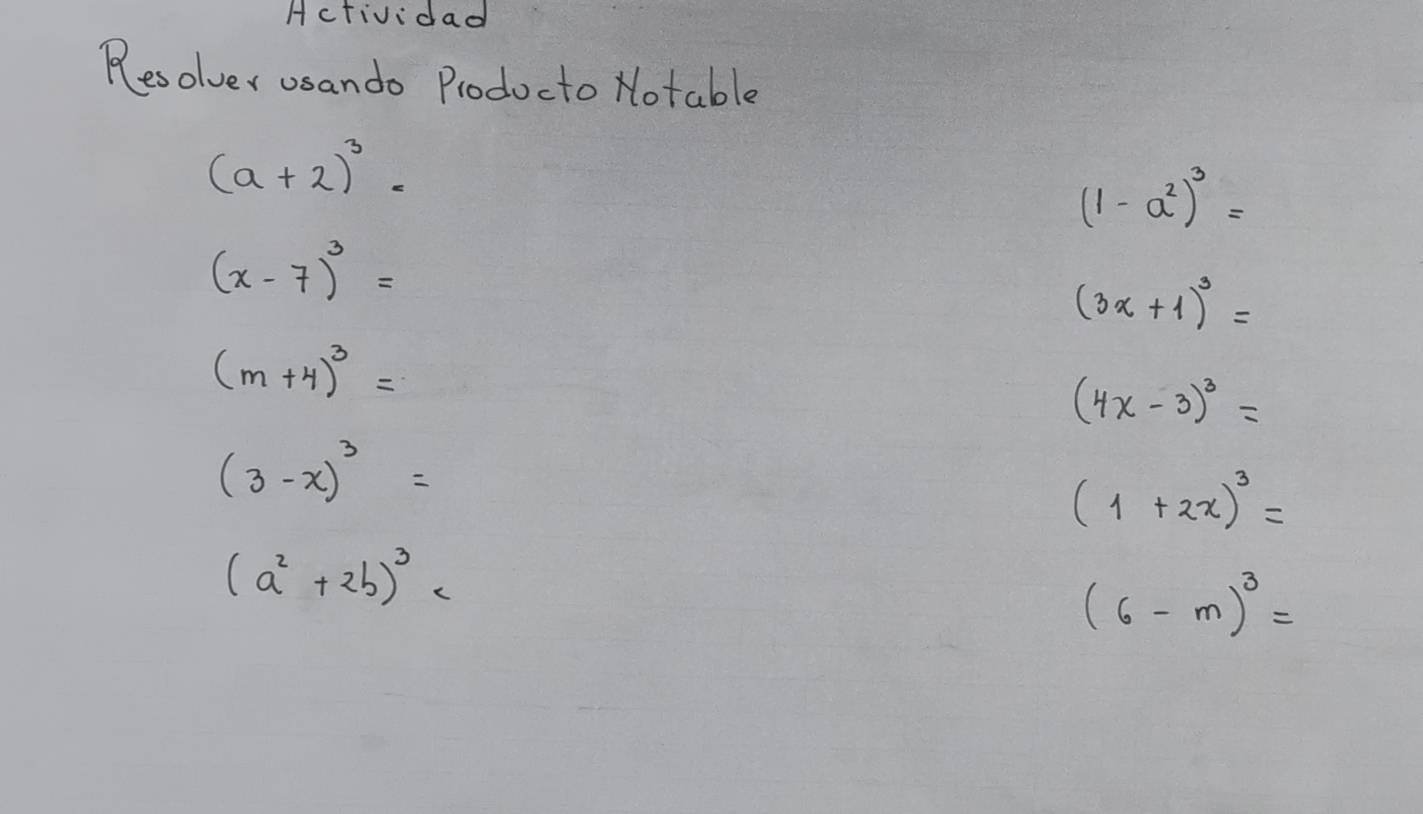 Actividad
Resolver usando Producto Notable
(a + 2)³ =
(x - 7)³ =
(m + 4)³ =
(3 - x)³ =
(a² + 2b)³ =
(1 - a²)³ =
(3x + 1)³ =
(4x - 3)³ =
(1 + 2x)³ =
(6 - m)³ =